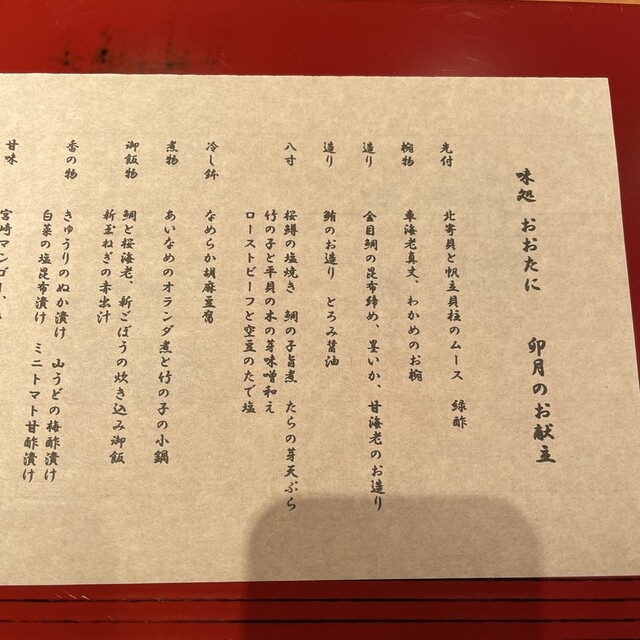 味処 おおたに 卯月のお献立
先付 北寄貝と帆立貝柱のムース 緑酢
椀物 車海老真丈、わかめのお椀
造り 金目鯛の昆布締め、墨いか、甘海老のお造り
造り 鮪のお造り とろみ醤油
八寸 桜鱒の塩焼き 鯛の子旨煮 たらの芽天ぷら
竹の子と平貝の木の芽味噌和え
ローストビーフと空豆のたで塩
冷し鉢 なめらか胡麻豆腐
煮物 あいなめのオランダ煮と竹の子の小鍋
御飯物 鯛と桜海老、新ごぼうの炊き込み御飯
新玉ねぎの赤出汁
香の物 きゅうりのぬか漬け 山うどの梅酢漬け
白菜の塩昆布漬け ミニトマト甘酢漬け
甘味 宮崎マンゴー、